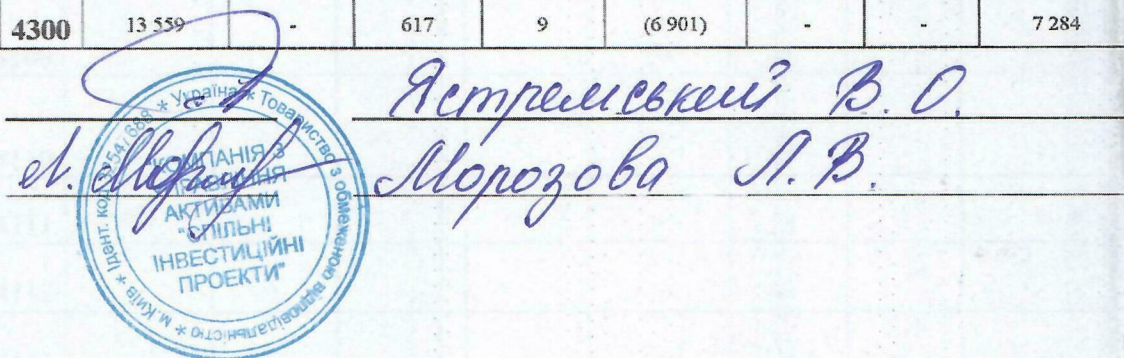 4300 13 559 - 617 9 (6 901) - - 7 284
Ястремський В. О.
Л. Морозова Л. В.
* Україна * Товариство з обмеженою відповідальністю * м. Київ * Ідент. код
"КОМПАНІЯ З
УПРАВЛІННЯ
АКТИВАМИ
"СПІЛЬНІ
ІНВЕСТИЦІЙНІ
ПРОЕКТИ"